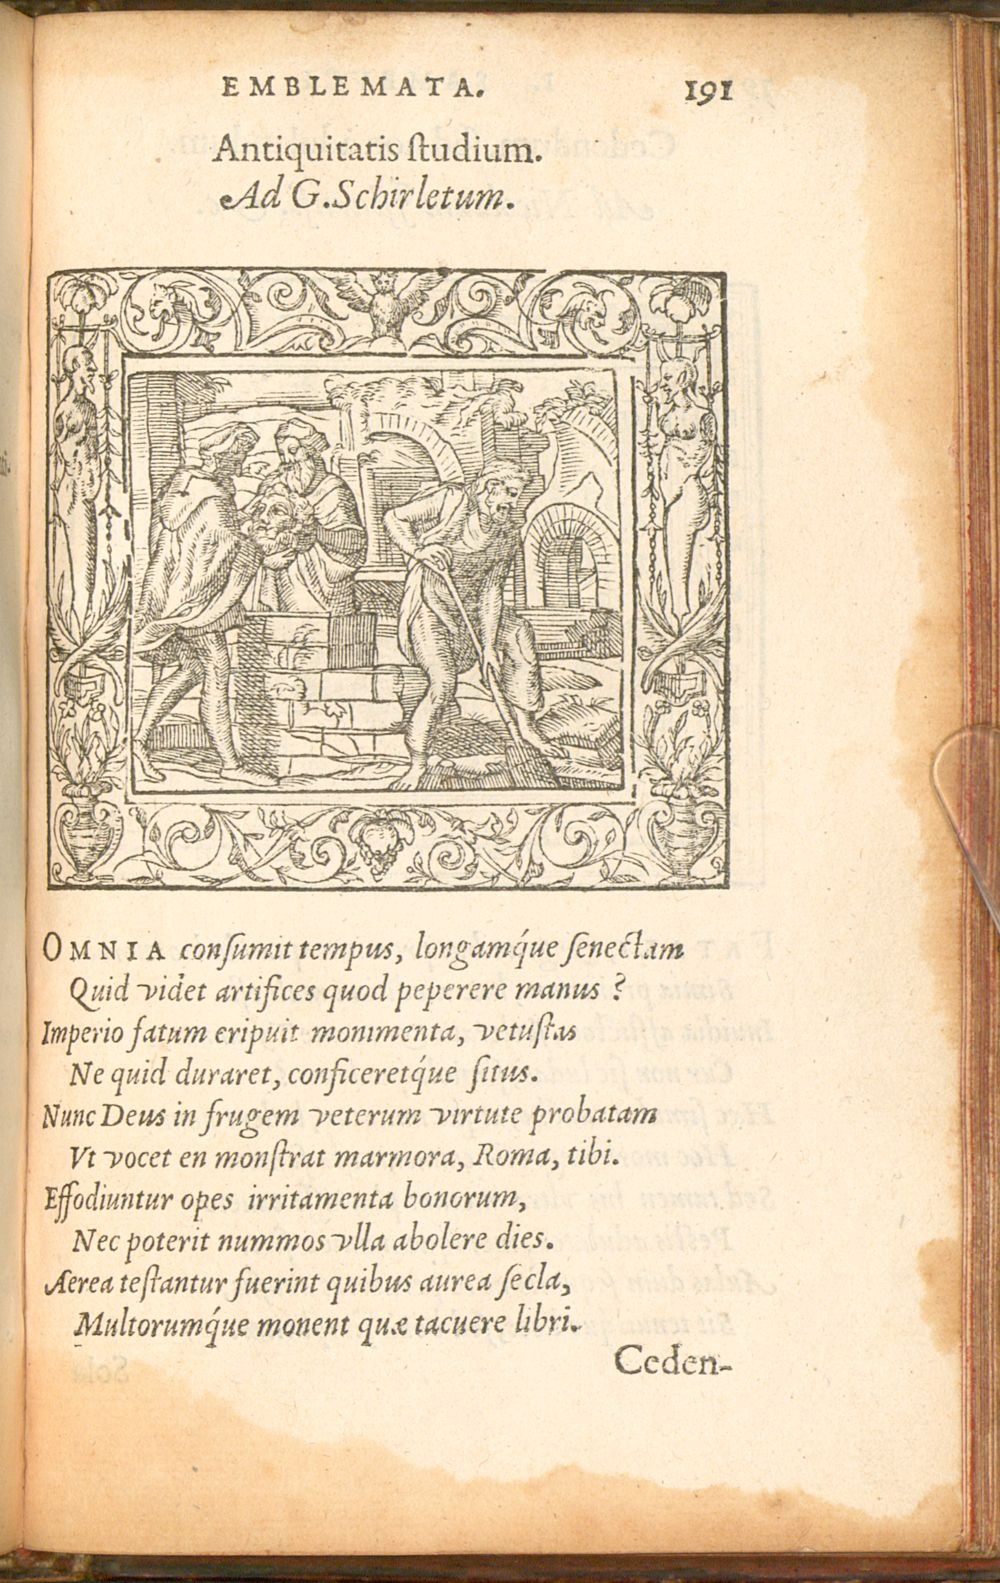 EMBLEMATA. 191
Antiquitatis ſtudium.
Ad G. Schirletum.
OMNIA conſumit tempus, longamq́ue ſenectam
Quid videt artifices quod peperere manus ?
Imperio fatum eripuit monimenta, vetuſtas
Ne quid duraret, conficeretq́ue ſitus.
Nunc Deus in frugem veterum virtute probatam
Vt vocet en monſtrat marmora, Roma, tibi.
Effodiuntur opes irritamenta bonorum,
Nec poterit nummos vlla abolere dies.
Aerea teſtantur fuerint quibus aurea ſecla,
Multorumq́ue monent quæ tacuere libri.
Ceden-